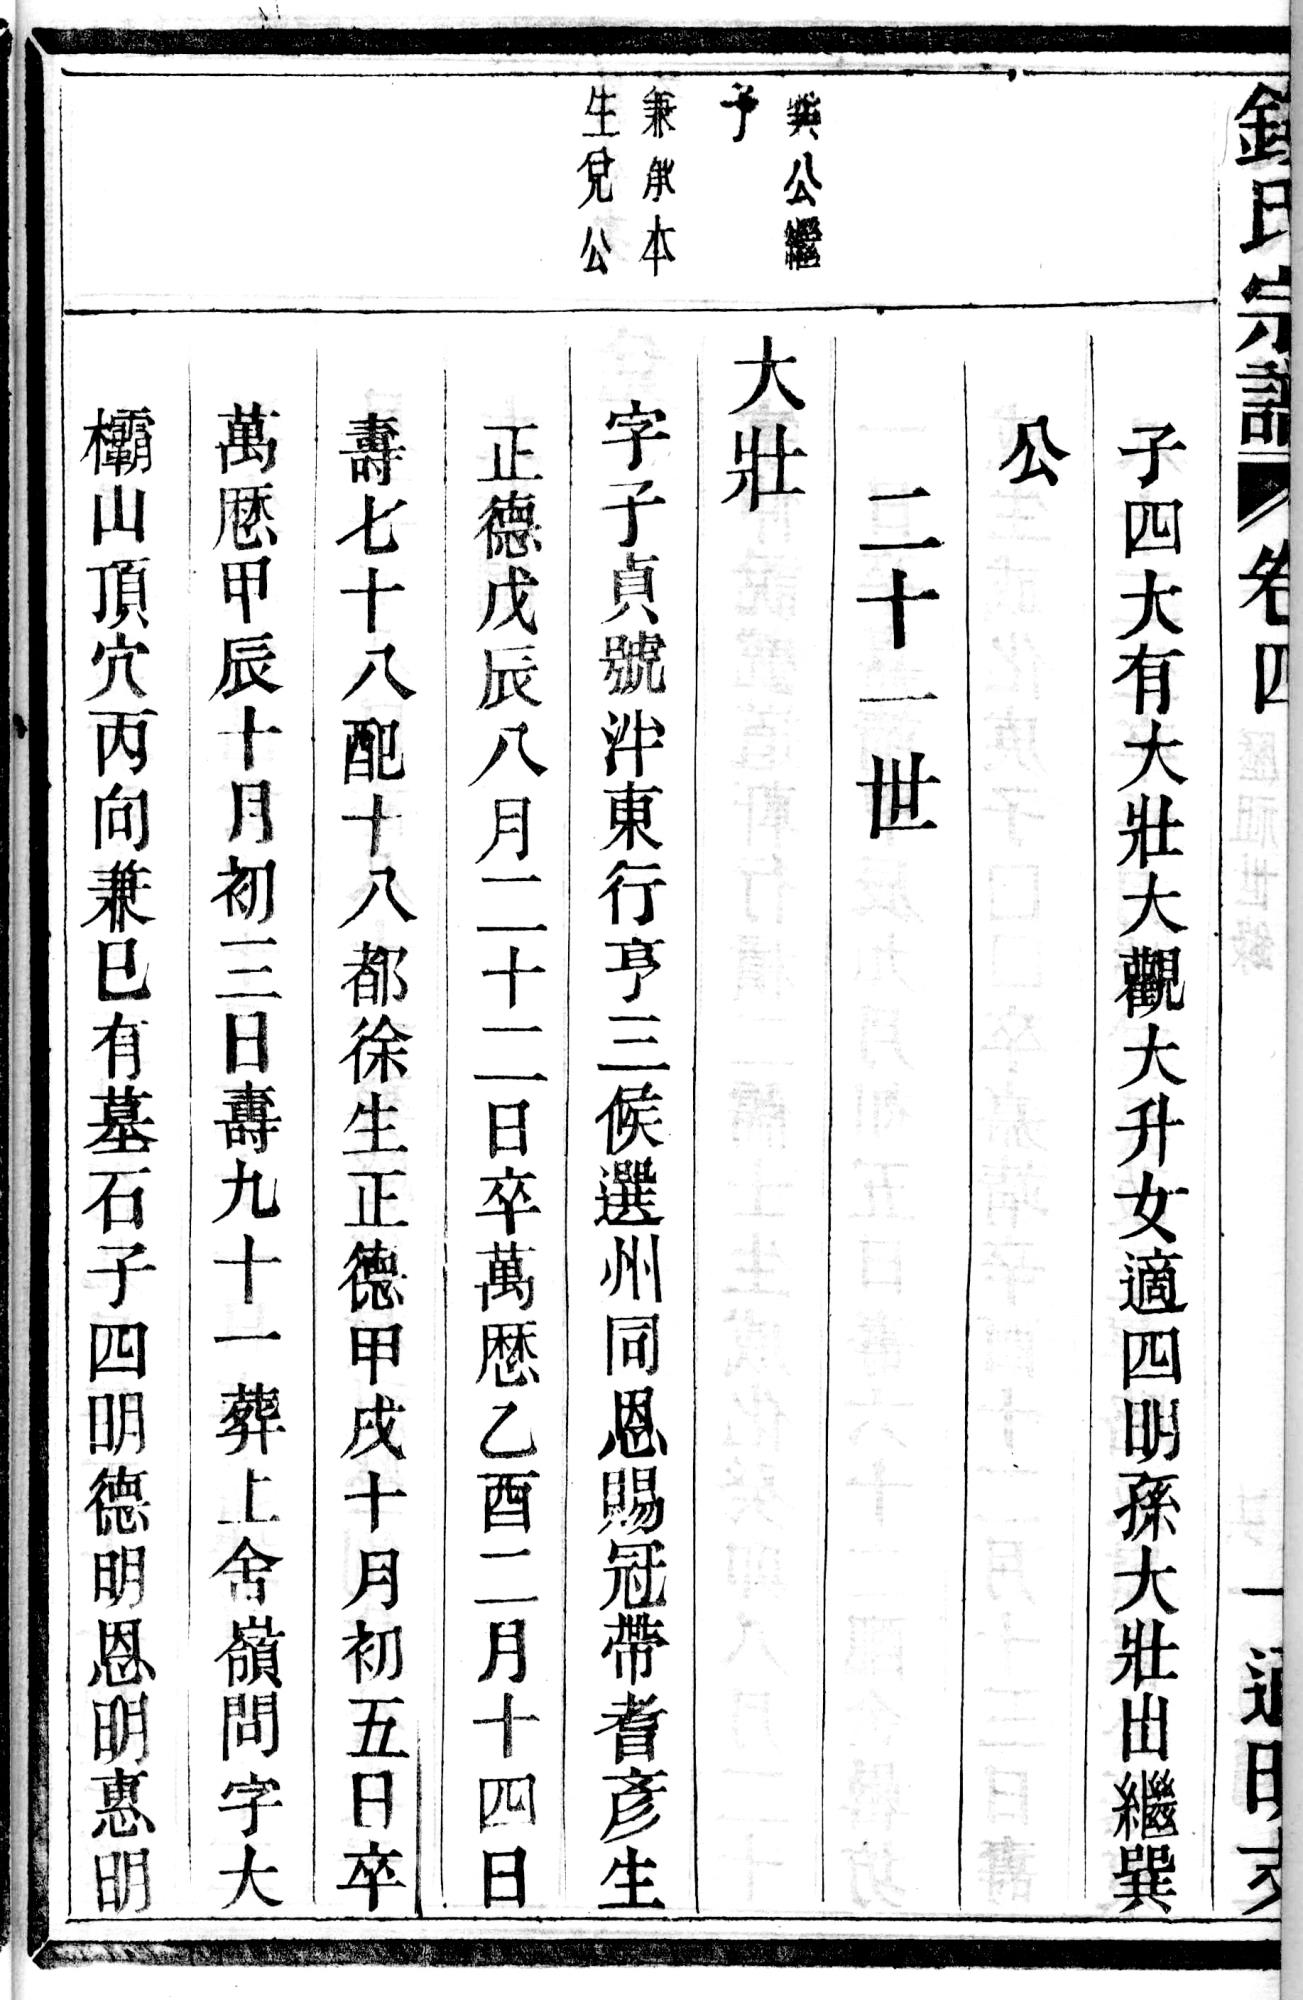 氏宗譜 卷四
子四大有大壯大觀大升女適四明孫大壯出繼巽
公
二十一世
巽公繼
子
大壯
兼承本
生兌公
字子貞號泮東行亨三候選州同恩賜冠帶耆彥生
正德戊辰八月二十二日卒萬歷乙酉二月十四日
壽七十八配十八都徐生正德甲戌十月初五日卒
萬歷甲辰十月初三日壽九十一葬上舍嶺問字大
欛山頂穴丙向兼巳有墓石子四明德明恩明惠明